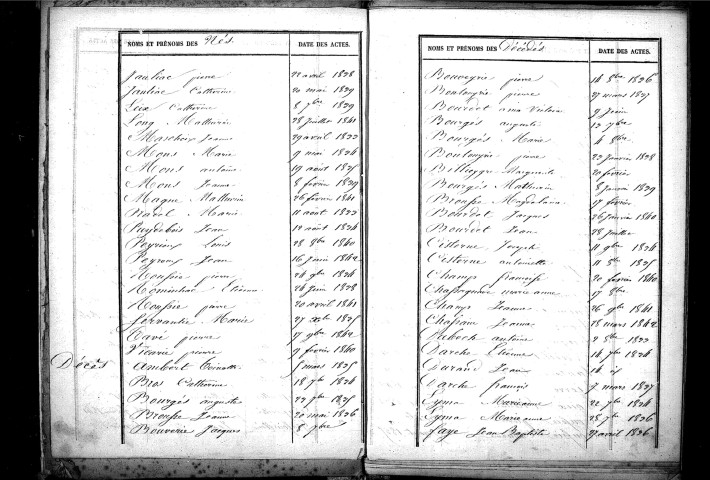 NOMS ET PRÉNOMS DES Nés. DATE DES ACTES.
Jauliac pierre 22 avril 1828
Jauliac Catherine 20 mai 1839
Leix Catherine 8 7bre 1839
Long Mathurin 28 Juillet 1841
Maschoix Jeanne 29 avril 1822
Mons Marie 9 mai 1824
Mons antoine 19 août 1825
Mons Jeanne 8 février 1829
Magne Mathurin 26 février 1841
Navel Marie 11 août 1822
Puydebois Jean 12 août 1824
Peyrioux Louis 28 8bre 1840
Peyroux Jean 16 Juin 1842
Roussie pierre 24 9bre 1824
Etienne 24 Juin 1828
Roussie pierre 20 avril 1841
Servantie Marie 27 1825
Tavé pierre 17 9bre 1842
Vicarie pierre 9 février 1840
Décès
Ambert 5 mars 1825
Bros Catherine 18 7bre 1824
Bourgés auguste 22 7bre 1825
Brousse Jeanne 20 mai 1826
Bouverie Jacques 8 7bre
NOMS ET PRÉNOMS DES Décédés DATE DES ACTES.
Bouverie pierre 14 8bre 1826
Boulongne pierre 27 mars 1827
Bourdet 9 Juin
Bourgés auguste 12 7bre
Bourgés Marie 4 8bre
Boulongne pierre 22 Janvier 1828
Marguerite 20 février
Bourgés Mathurin 8 Janvier 1829
Brousse Magdelaine 17 février
Bourdet Jacques 26 Janvier 1840
Bourdet Jean 28 Juillet
Cisterne Joseph 11 9bre 1824
Cisterne antoinette 11 8bre 1825
Champs françoise 20 février 1840
marie anne 17 8bre
Champs Jeanne 26 9bre 1841
Chassain Jeanne 28 mars 1842
Duboch antoine 2 8bre 1822
Darche Etienne 14 7bre 1824
Durand Jean 14 id
Darche françois 7 mars 1827
Eyma Marie anne 22 7bre 1824
Eyma Marie anne 28 7bre 1826
faye Jean Baptiste 27 avril 1826